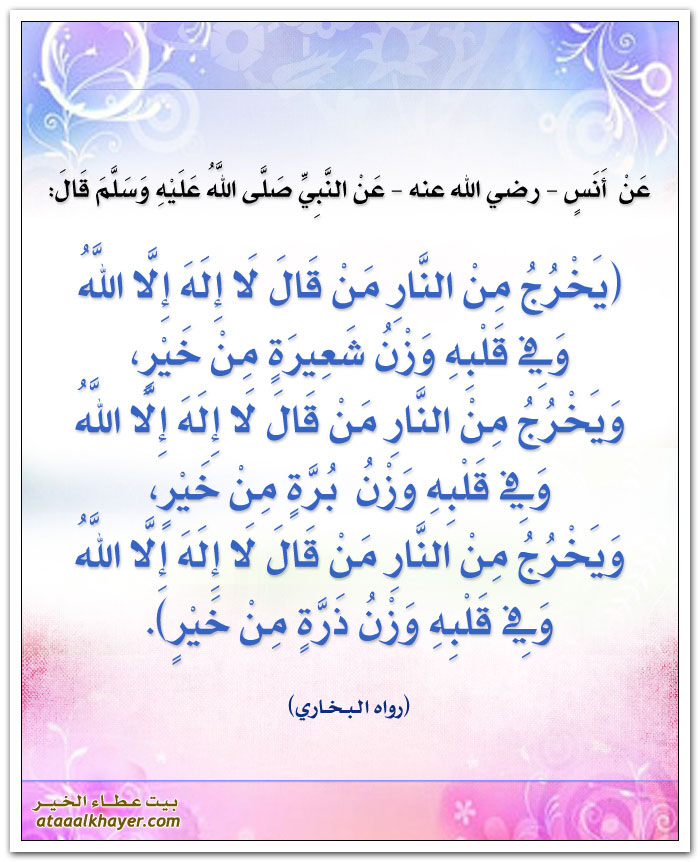 عَنْ أَنَسٍ - رضي الله عنه - عَنْ النَّبِيِّ صَلَّى اللَّهُ عَلَيْهِ وَسَلَّمَ قَالَ:
(يَخْرُجُ مِنْ النَّارِ مَنْ قَالَ لَا إِلَهَ إِلَّا اللَّهُ
وَفِي قَلْبِهِ وَزْنُ شَعِيرَةٍ مِنْ خَيْرٍ،
وَيَخْرُجُ مِنْ النَّارِ مَنْ قَالَ لَا إِلَهَ إِلَّا اللَّهُ
وَفِي قَلْبِهِ وَزْنُ بُرَّةٍ مِنْ خَيْرٍ،
وَيَخْرُجُ مِنْ النَّارِ مَنْ قَالَ لَا إِلَهَ إِلَّا اللَّهُ
وَفِي قَلْبِهِ وَزْنُ ذَرَّةٍ مِنْ خَيْرٍ).
(رواه البخاري)
بيت عطاء الخير
ataaalkhayer.com